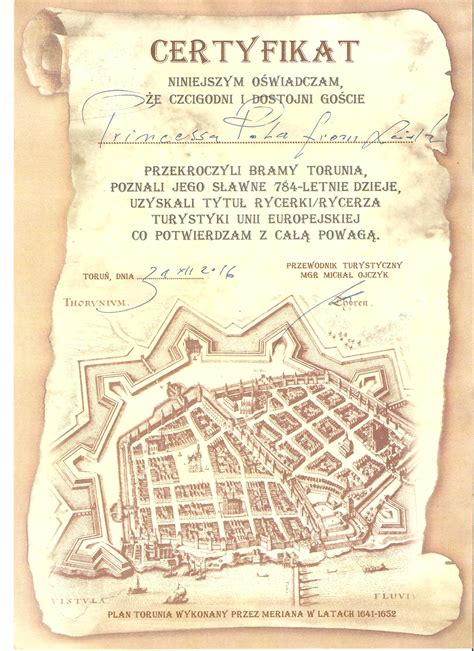 CERTYFIKAT
NINIEJSZYM OŚWIADCZAM,
ŻE CZCIGODNI I DOSTOJNI GOŚCIE
Princessa Pola from
PRZEKROCZYLI BRAMY TORUNIA,
POZNALI JEGO SŁAWNE 784-LETNIE DZIEJE,
UZYSKALI TYTUŁ RYCERKI/RYCERZA
TURYSTYKI UNII EUROPEJSKIEJ
CO POTWIERDZAM Z CAŁĄ POWAGĄ.
TORUŃ, DNIA 21 XII 2016
PRZEWODNIK TURYSTYCZNY
MGR MICHAŁ OJCZYK
THORUNIUM.
VISTULA FLUVI
PLAN TORUNIA WYKONANY PRZEZ MERIANA W LATACH 1641-1652